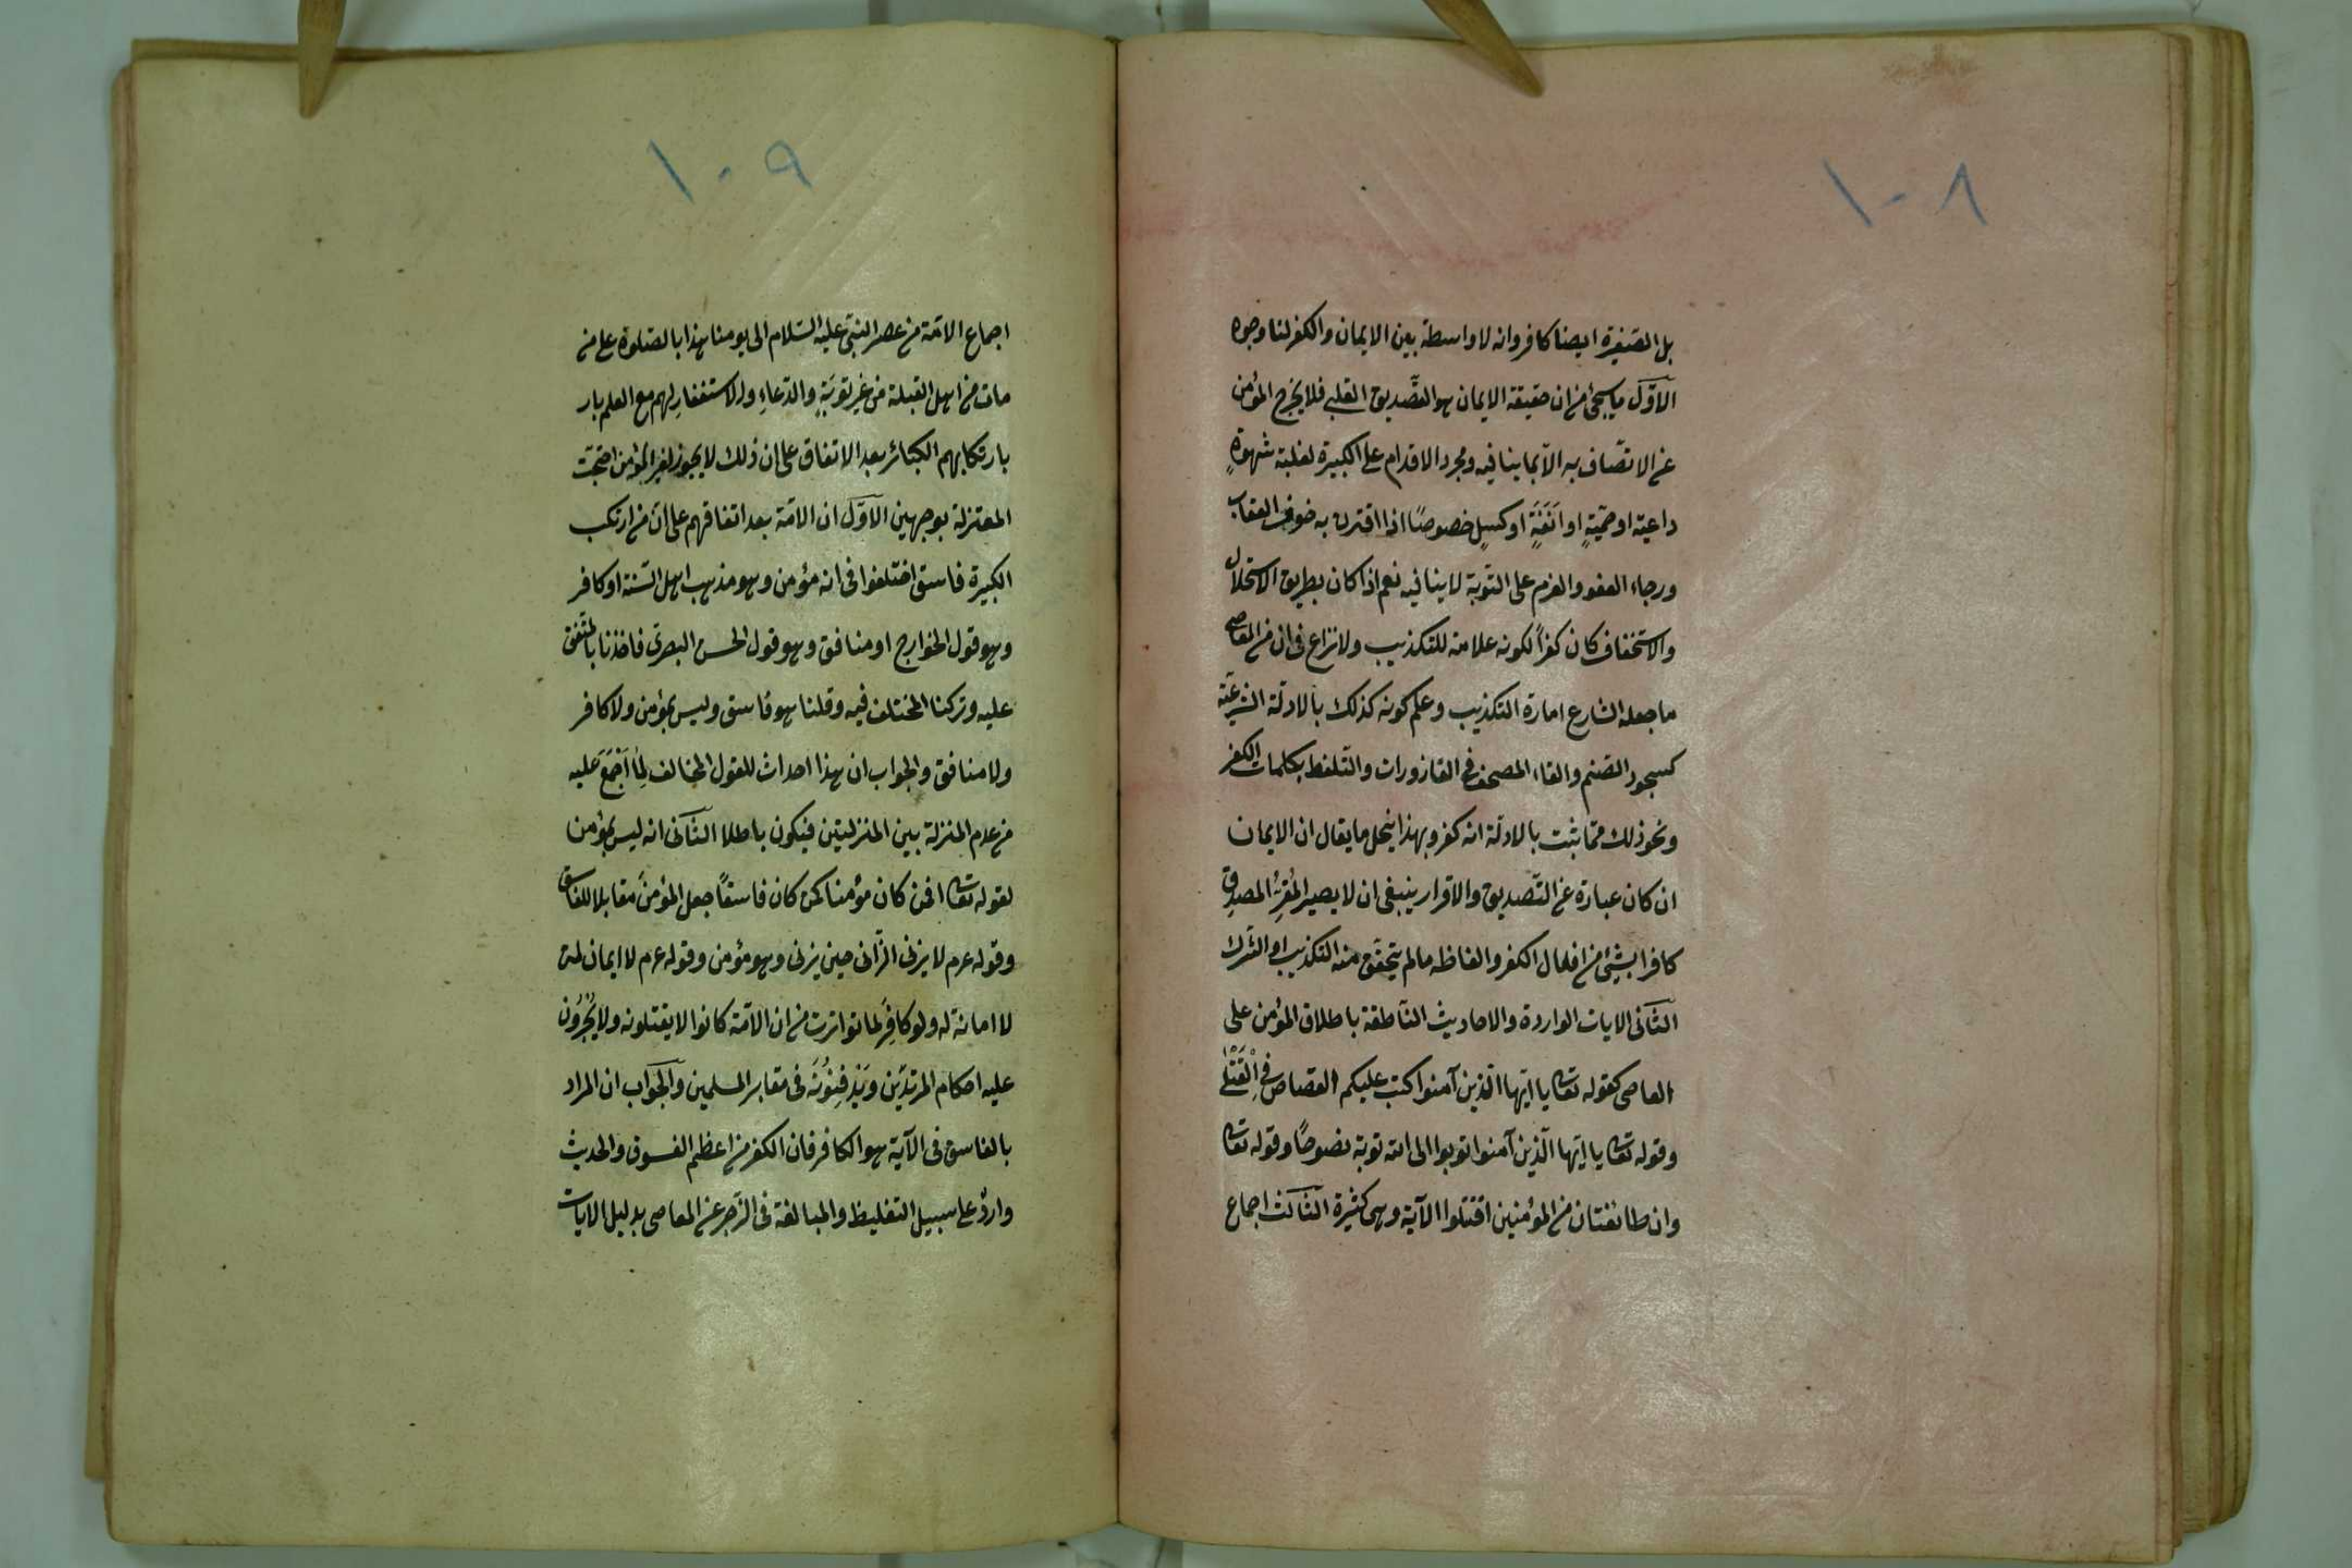 ١٠٨
بل الصغيرة ايضا كافر وانه لا واسطة بين الايمان والكفر لنا وجوه
الاوّل ما سيجئ من ان حقيقة الايمان هو التّصديق القلبي فلا يخرج المؤمن
عن الاتّصاف به الاّ بما ينافيه ومجرد الاقدام على الكبيرة لغلبة شهوةٍ
داعية او حميّةٍ او انَفَةٍ او كسلٍ خصوصًا اذا اقترن به خوف العقاب
ورجاء العفو والعزم على التّوبة لا ينافيه نعم اذا كان بطريق الاستحلال
والاستخفاف كان كفراً لكونه علامة للتكذيب ولا نزاع فى ان من المعاصى
ما جعله الشارع امارة التكذيب وعلم كونه كذلك بالادلّة الشرعيّة
كسجود الصّنم والقاء المصحف فى القازورات والتلفظ بكلمات الكفر
ونحو ذلك ممّا يثبت بالادلّة انه كفر وبهذا ينحل ما يقال ان الايمان
ان كان عبارة عن التّصديق والاقرار ينبغى ان لا يصير المُقِرُّ المصدق
كافرا بشئ من افعال الكفر والفاظه ما لم يتحقّق منه التكذيب او الشرك
الثّانى الايات الواردة والاحاديث النّاطقة باطلاق المؤمن على
العاصى كقوله تعالى يا ايّها الّذين آمنوا كتب عليكم القصاص فى القَتْلى
وقوله تعالى يا ايّها الّذين آمنوا توبوا الى الله توبة نصوحًا وقوله تعالى
وان طائفتان من المؤمنين اقتتلوا الآية وهى كثيرة الثالث اجماع
١٠٩
اجماع الامّة من عصر النبىّ عليه السّلام الى يومنا هذا بالصّلوة على من
مات من اهل القبلة من غير توبَةٍ والدّعاءِ والاستغفارِ لهم مع العلم بار
بارتكابهم الكبائر بعد الاتفاق على ان ذلك لا يجوز لغير المؤمن احتجّت
المعتزلة بوجهين الاوّل ان الامّة بعد اتفاقهم على انّ من ارتكب
الكبيرة فاسق اختلفوا فى انه مؤمن وهو مذهب اهل السّنة او كافر
وهو قول الخوارج او منافق وهو قول الحسن البصرى فاخذنا بالمتّفق
عليه وتركنا المختلف فيه وقلنا هو فاسق وليس بمؤمن ولا كافر
ولا منافق والجواب ان هذا احداث للقول المخالف لِمَا اَجْمَعَ عليه
من عدم المنزلة بين المنزلتين فيكون باطلا الثّانى انه ليس بمؤمن
لقوله تعالى افمن كان مؤمنا كمن كان فاسقًا جعل المؤمنَ مقابلا للفاسق
وقوله عم لا يزنى الزّانى حين يزنى وهو مؤمن وقوله عم لا ايمان لمن
لا امانة له ولو كافرٍ لما تواترت من ان الامّة كانوا لا يقتلونه ولا يُجْرُون
عليه احكام المرتدّين ويَدْفِنُونَه فى مقابر المسلمين والجواب ان المراد
بالفاسق فى الآية هو الكافر فان الكفر من اعظم الفسوق والحديث
واردٌ على سبيل التغليظ والمبالغة فى الزّجر عن المعاصى بدليل الايات